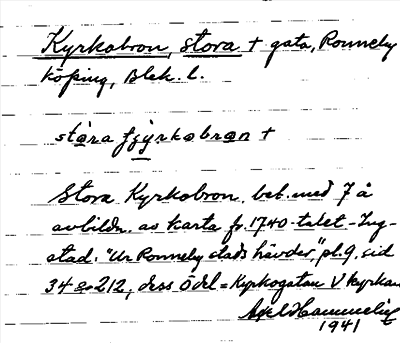 Kyrkobron, stora + gata, Ronneby
köping, Blek. l.
stora fjyrkobron +
Stora Kyrkobron. bet. med 7 å
avbildn. av karta fr. 1740-talet - Ing-
stad. "Ur Ronneby stads hävder", pl. 9. sid
34 o. 212, dess ö del = Kyrkogatan V kyrkan
Axel
1941